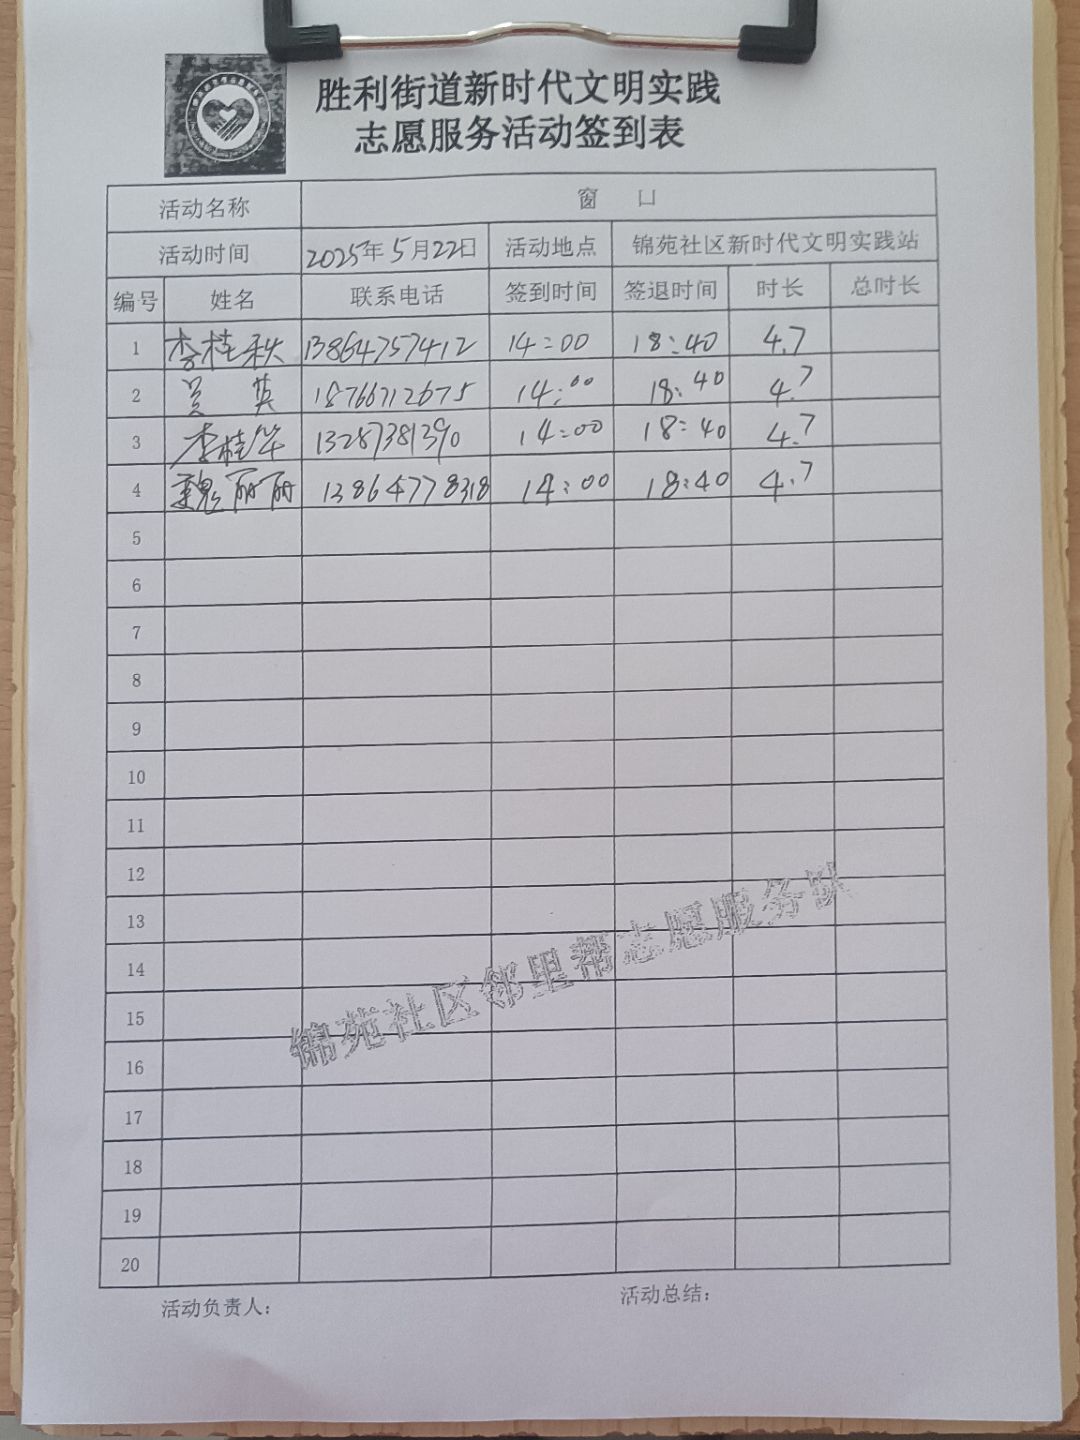 胜利街道新时代文明实践
志愿服务活动签到表
活动名称 窗 口
活动时间 2025年5月22日 活动地点 锦苑社区新时代文明实践站
编号 姓名 联系电话 签到时间 签退时间 时长 总时长
1 李桂秋 13864757412 14:00 18:40 4.7
2 吴 英 18766712675 14:00 18:40 4.7
3 李桂华 13287381390 14:00 18:40 4.7
4 魏丽丽 13864778318 14:00 18:40 4.7
5
6
7
8
9
10
11
12
13
14
15
16
17
18
19
20
锦苑社区邻里帮志愿服务队
活动负责人: 活动总结: